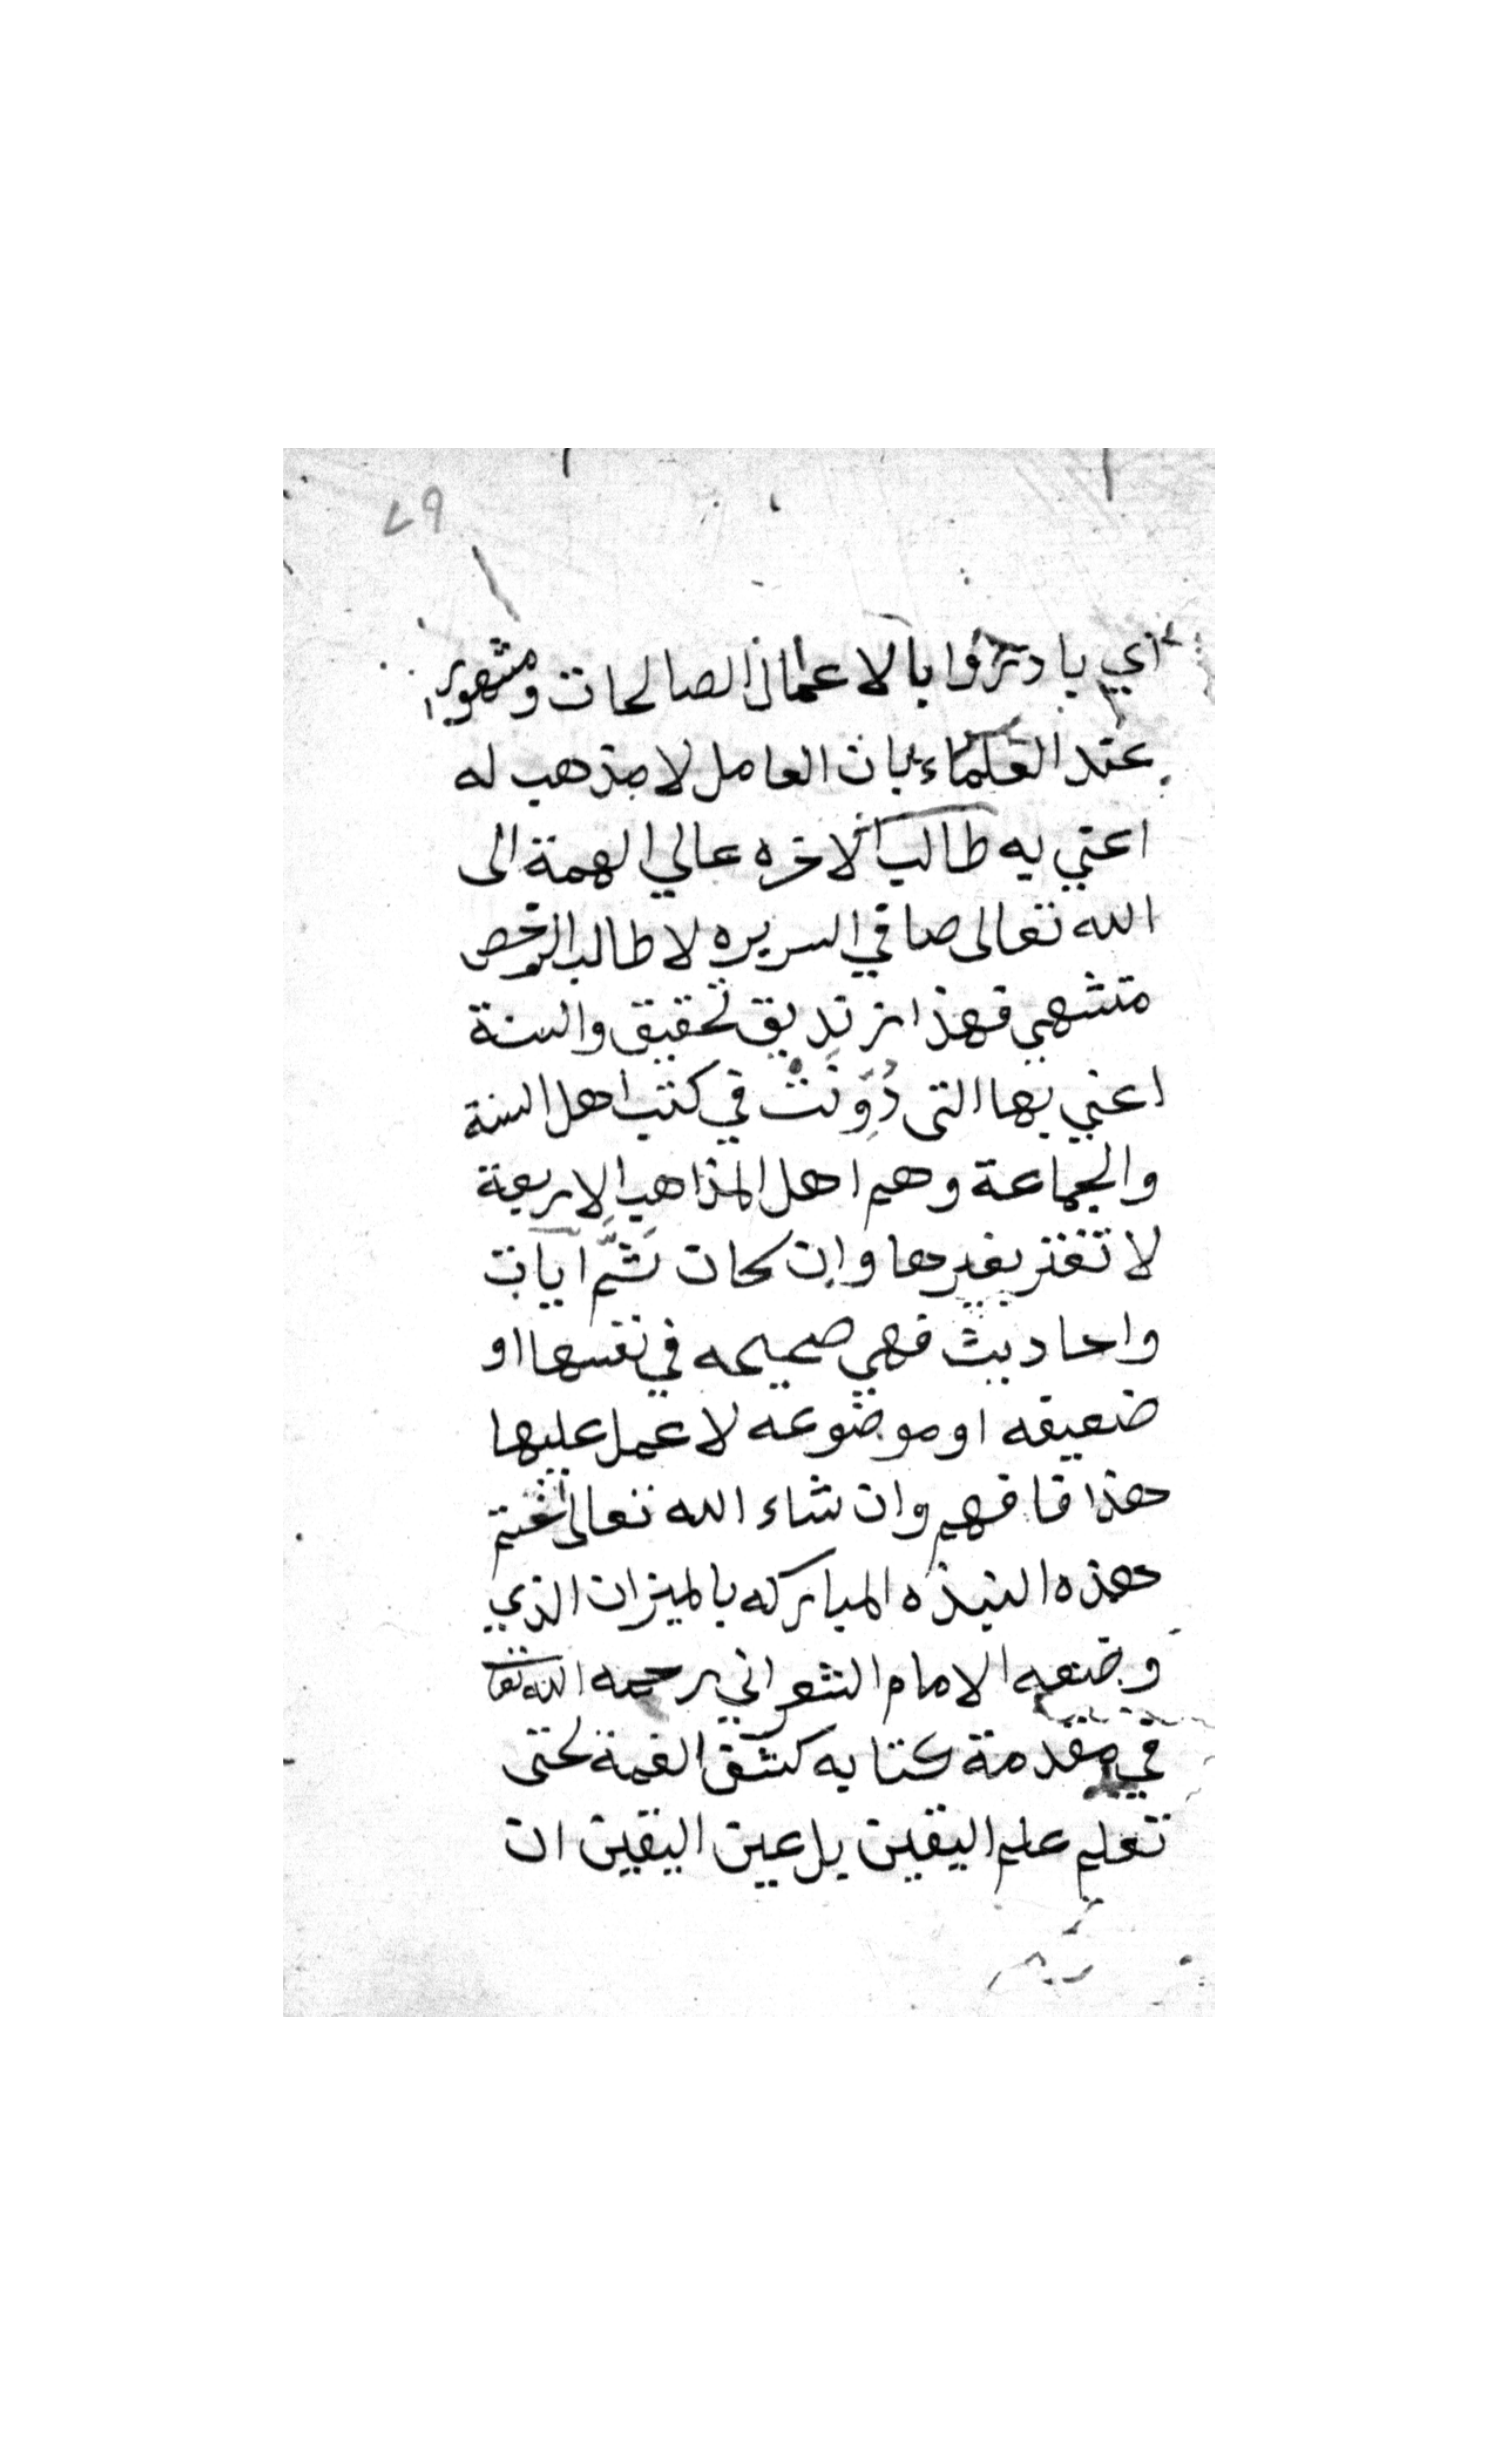 ٢٩
اي بادروا بالاعمال الصالحات ومشهور
عند العلماء بان العامل لا مذهب له
اعني به طالب الاخره عالي الهمة الى
الله تعالى صافي السريره لا طالب الرخص
متشهي فهذا زنديق تحقيق والسنة
اعني بها التي دُوِّنَتْ في كتب اهل السنة
والجماعة وهم اهل المذاهب الاربعة
لا تغتر بغيرها وان كان ثَمَّ ايات
واحاديث فهي صحيحه في نفسها او
ضعيفه او موضوعه لا عمل عليها
هذا فافهم وان شاء الله تعالى نختم
هذه النبذه المباركه بالميزان الذي
وضعه الامام الشعراني رحمه الله تعا
في مقدمة كتابه كشف الغمة لحتى
تعلم علم اليقين بل عين اليقين ان